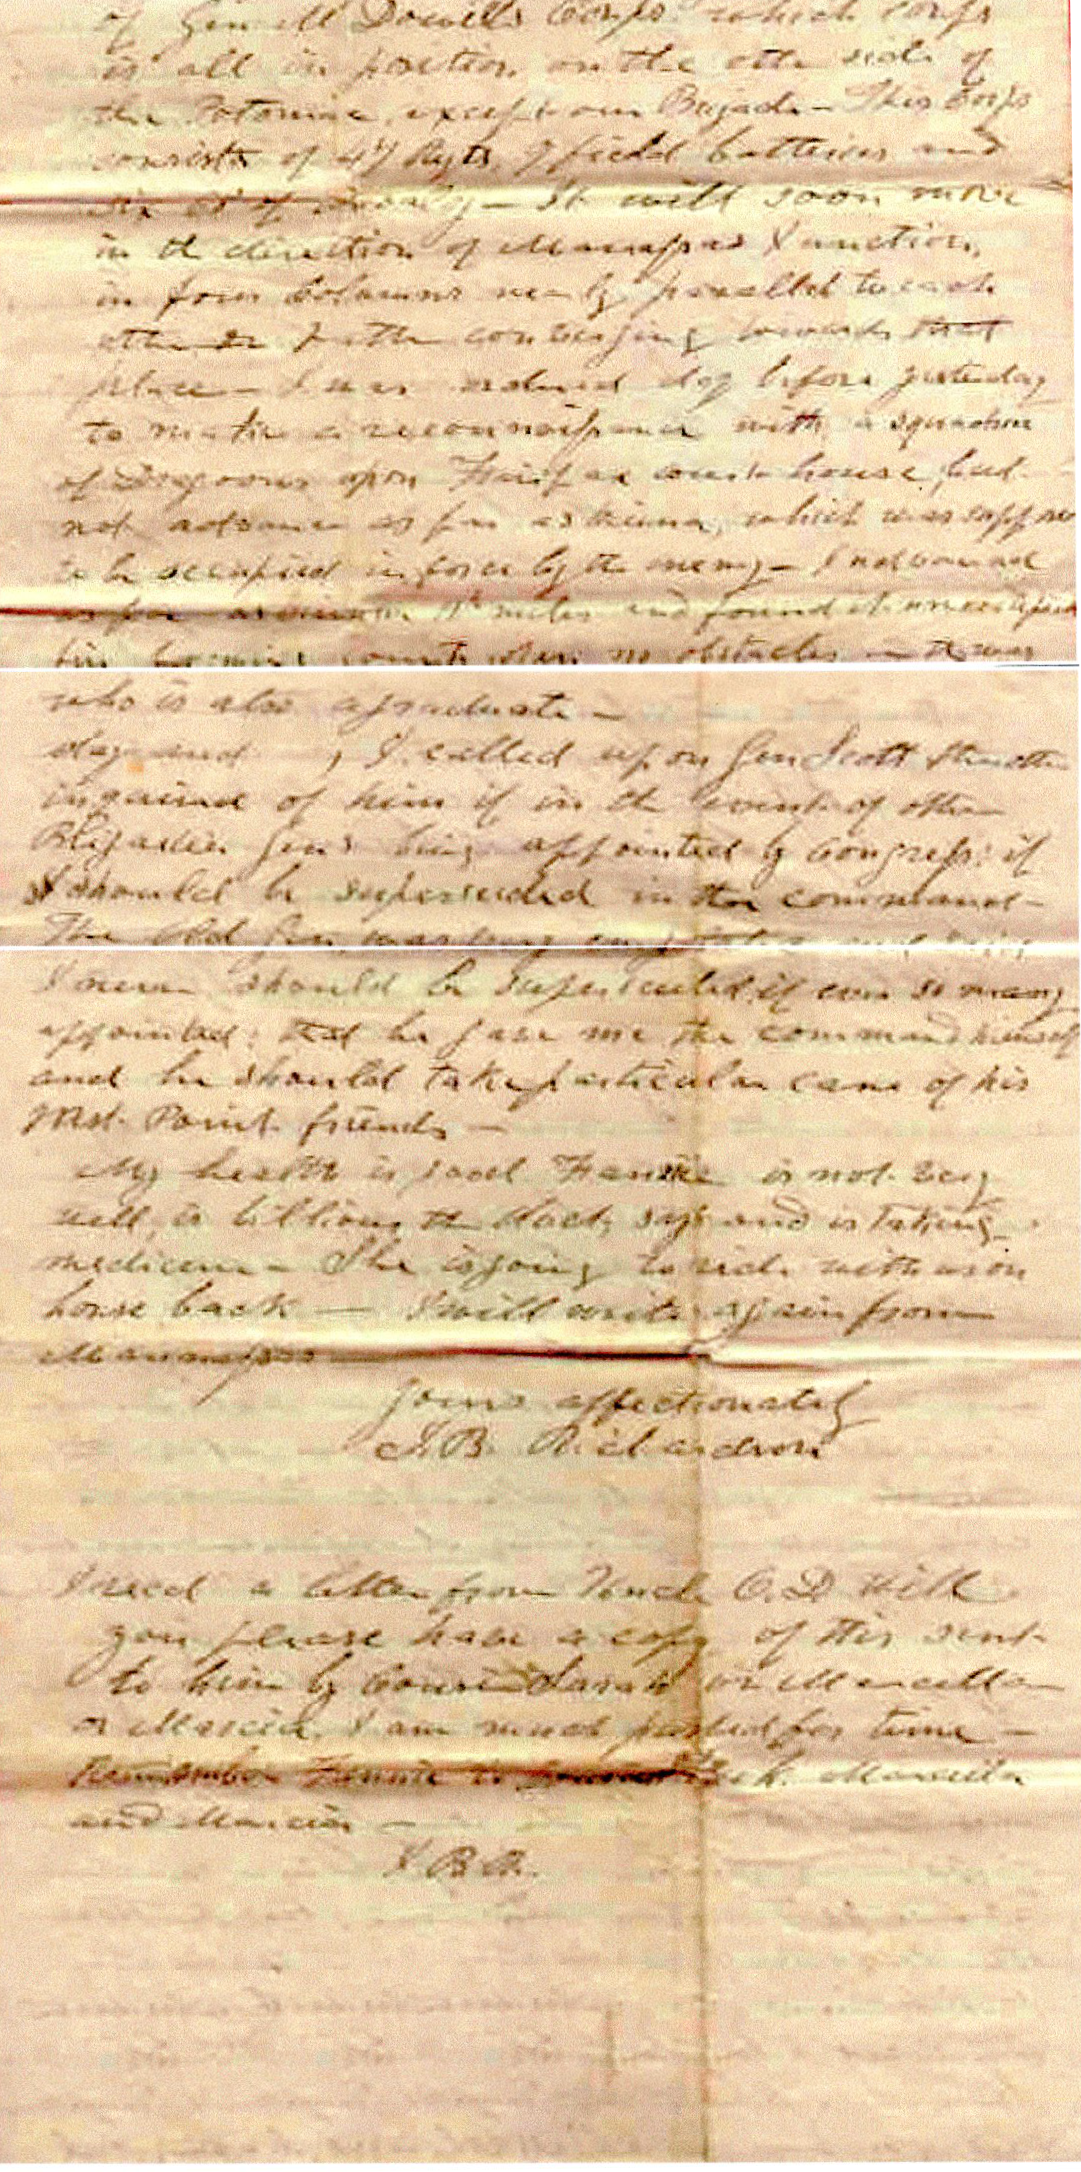 of Gen McDowell's Corps. which corps
is all in position on the othe side of
the Potomac, except our Brigade - This Corps
consists of 47 Regts, 7 field batteries and
six of - It will soon move
in th direction of Manassas Junction,
in four Columns nearly parallel to each
othe or rathe converging towards that
place - I was ordered day before yesterday
to make a reconnoissance with a squadron
of Dragoons upon Fairfax court house, but
not advance as far as Vienna, which was suppose
to be occupied in force by th enemy - I advanced
as far as Vienna miles and found it unoccupied
no obstacles - it was
who is also a graduate -
day and , I called upon Gen Scott
inquired of him if in th event of othe
Brigadier Gens being appointed by Congress: if
I should be superseded in the command -
The Old Gen
I never should be superseded if ever so many
appointed: that he gave me the command himself
and he should take particular care of his
West Point friends -
My health is good Fannie is not very
well, is billious th Doct, says and is taking
medicine - She is going to ride with us on
horse back - I will write again from
Manassas
Yours affectionately
I. B. Richardson
I recd a letter from Uncle O. D Will
you please have a copy of this sent
to him by Cousin Sarah or Marcella
or Marcia. I am much pushed for time -
Remember Fannie to Marcella
and Marcia -
I B R.